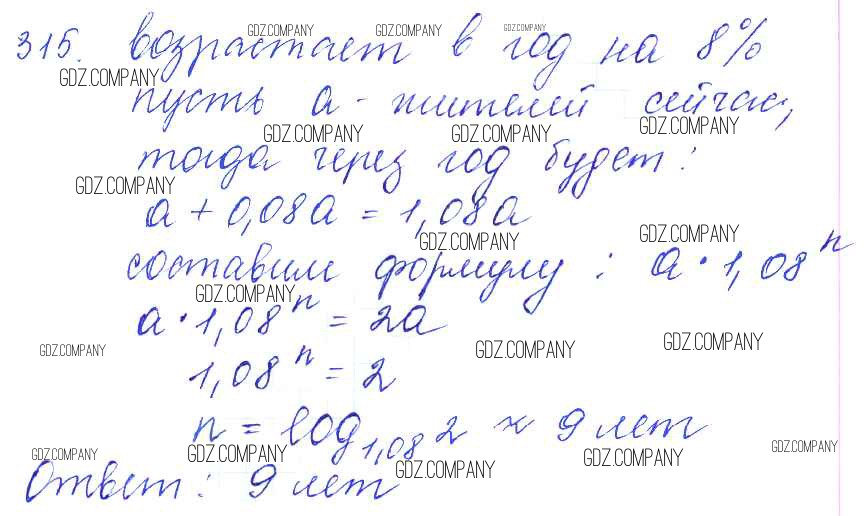 315. возрастает в год на 8%
пусть а - жителей сейчас,
тогда через год будет:
а + 0,08а = 1,08а
составим формулу: а · 1,08ⁿ
а · 1,08ⁿ = 2а
1,08ⁿ = 2
n = log₁,₀₈ 2 ≈ 9 лет
Ответ: 9 лет
GDZ.COMPANY GDZ.COMPANY GDZ.COMPANY
GDZ.COMPANY
GDZ.COMPANY GDZ.COMPANY GDZ.COMPANY
GDZ.COMPANY
GDZ.COMPANY GDZ.COMPANY
GDZ.COMPANY
GDZ.COMPANY GDZ.COMPANY GDZ.COMPANY
GDZ.COMPANY GDZ.COMPANY GDZ.COMPANY GDZ.COMPANY GDZ.COMPANY